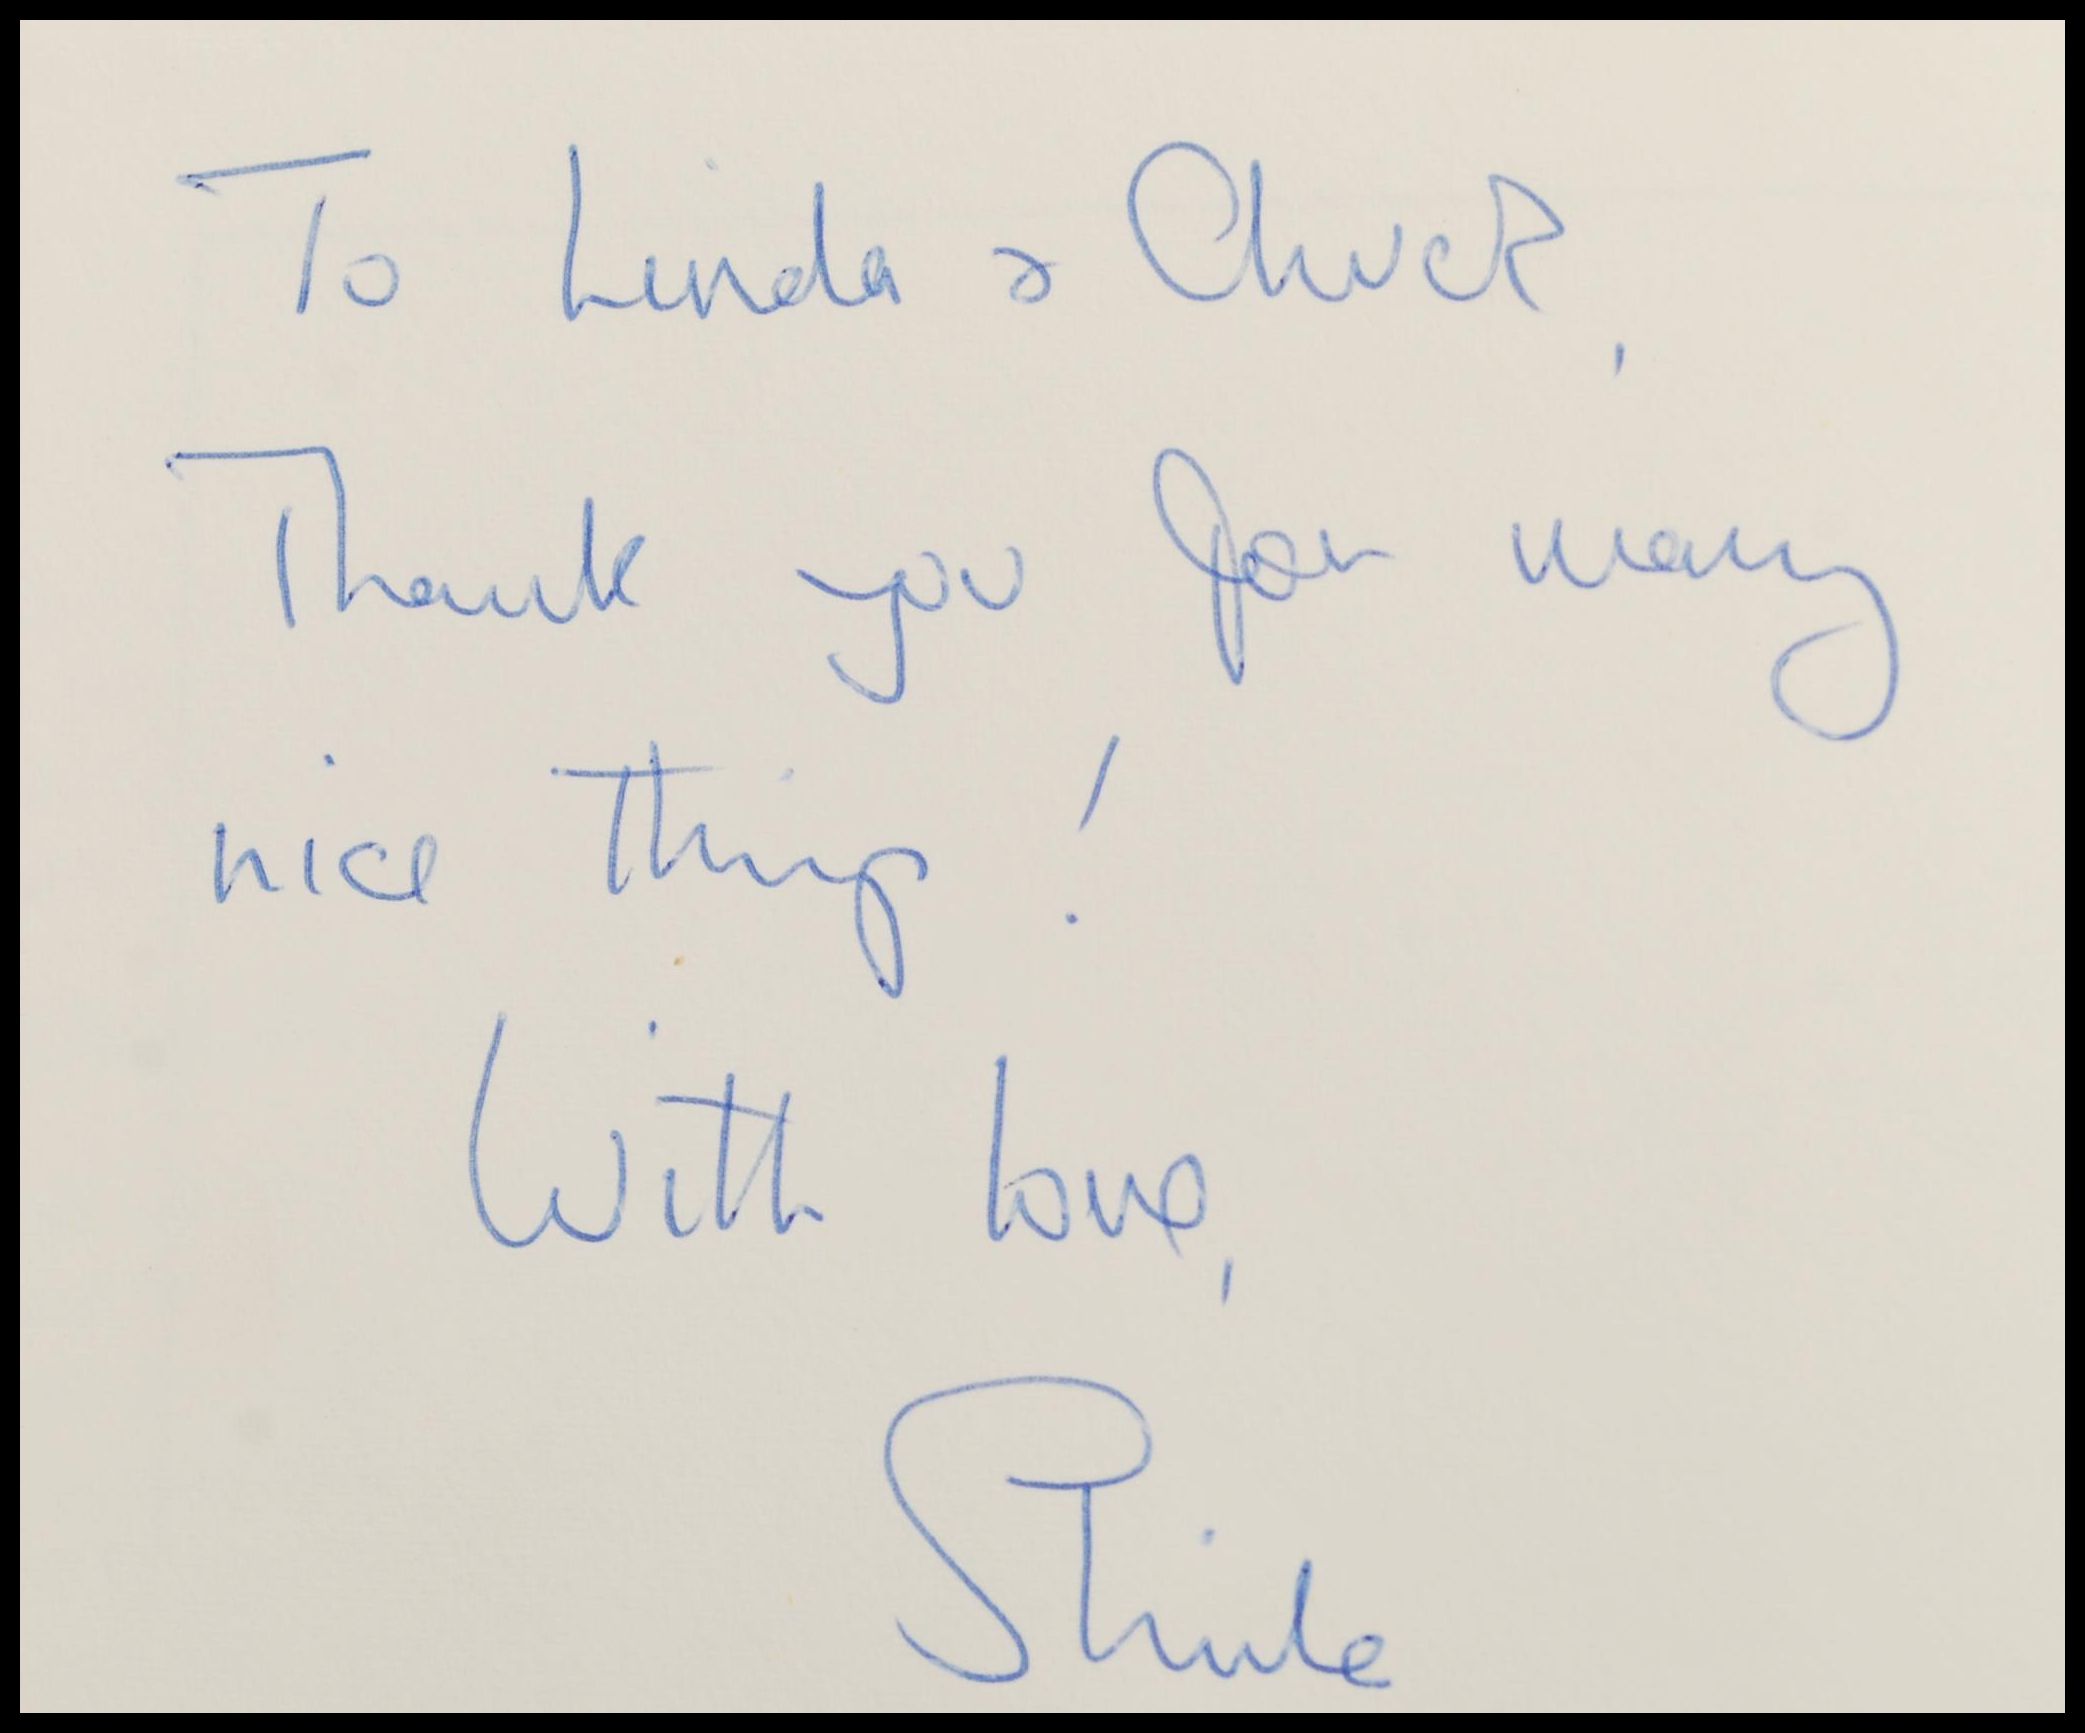 To Linda & Chuck,
Thank you for many
nice things!
With love,